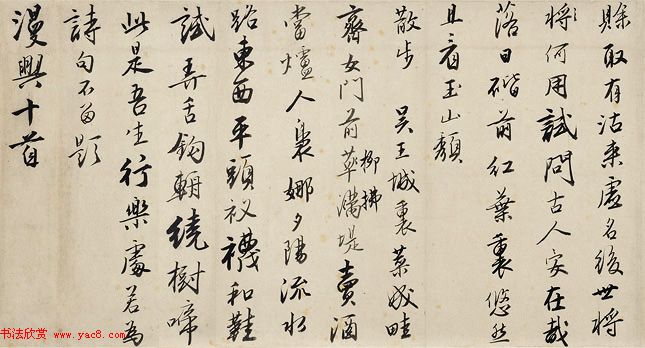 賒取有沽來虛名後世將
將何用試問古人安在哉
落日階前紅葉裏悠然
且看玉山頹
散步 吳王城裏菜成畦
柳拂
齊女門前草滿堤賣酒
當爐人裊娜夕陽流水
路東西平頭衩襪和鞋
試弄舌鈎輈繞樹啼
此是吾生行樂處若為
詩句不留題
漫興十首
书法欣赏
www.yac8.com